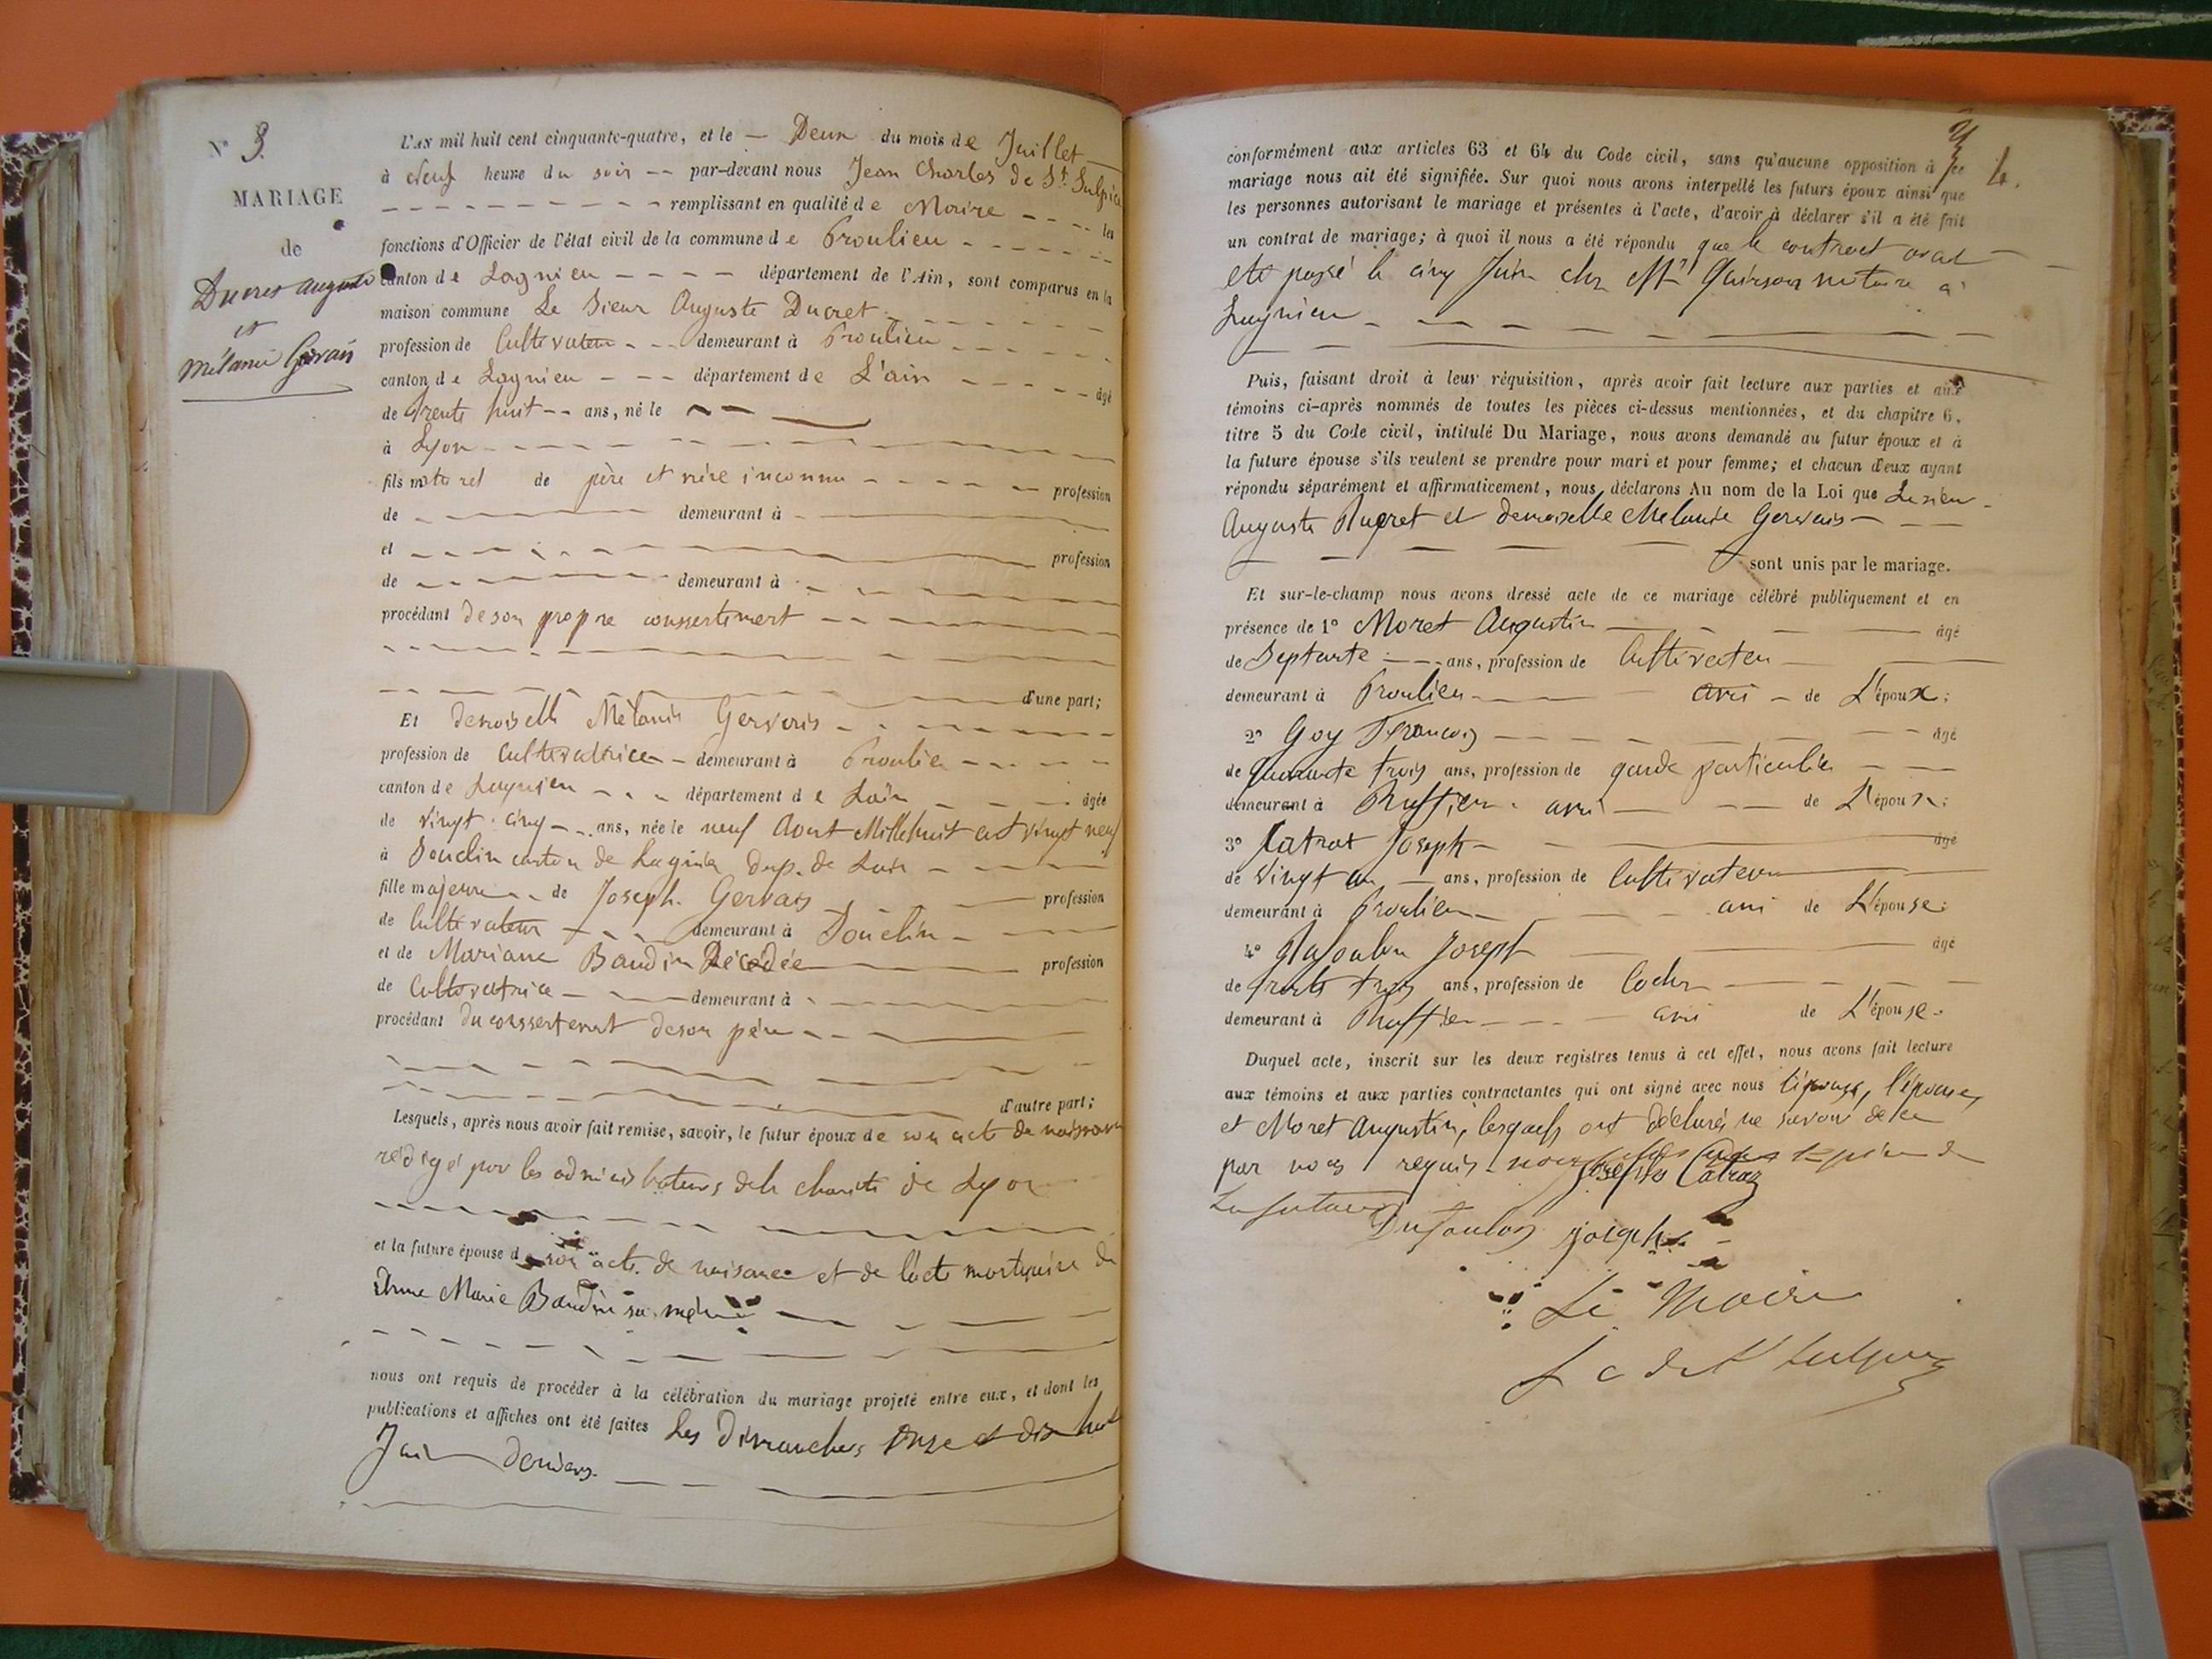 N° 3.
MARIAGE
de
Ducret auguste
et
mélanie Gervais
L'AN mil huit cent cinquante-quatre, et le — Deux du mois de Juillet —
à Neuf heure du soir -- par-devant nous Jean Charles de St. Sulpice
remplissant en qualité de Maire -- les
fonctions d'Officier de l'état civil de la commune de Proulieu
canton de Lagnieu ---- département de l'Ain, sont comparus en la
maison commune Le Sieur Auguste Ducret
profession de Cultivateur -- demeurant à Proulieu
canton de Lagnieu --- département de L'ain --- âgé
de trente huit -- ans, né le
à Lyon
fils naturel de père et mère inconnu ---- profession
de ---- demeurant à
et ---- profession
de ---- demeurant à
procédant de son propre conssentiment
d'une part;
Et demoiselle Mélanie Gervais
profession de Cultivatrice - demeurant à Proulieu
canton de Lagnieu --- département de Lain --- âgée
de vingt cinq -- ans, née le neuf Aout Mille huit cent vingt neuf
à Souclin canton de Lagnieu dep. de Lain
fille majeure -- de Joseph Gervais --- profession
de Cultivateur --- demeurant à Souclin
et de Mariane Baudin Décédée --- profession
de Cultivatrice --- demeurant à
procédant du conssentement de son père
d'autre part;
Lesquels, après nous avoir fait remise, savoir, le futur époux de son acte de naissance
rédigé par les administrateurs de la charité de Lyon
et la future épouse de son acte de naisance et de l'acte mortuaire de
Anne Marie Baudin sa mère
nous ont requis de procéder à la célébration du mariage projeté entre eux, et dont les
publications et affiches ont été faites Les Dimanches onze et dix huit
Juin derniers
4.
conformément aux articles 63 et 64 du Code civil, sans qu'aucune opposition à ce
mariage nous ait été signifiée. Sur quoi nous avons interpellé les futurs époux ainsi que
les personnes autorisant le mariage et présentes à l'acte, d'avoir à déclarer s'il a été fait
un contrat de mariage; à quoi il nous a été répondu que le contract avait
été passé le cinq Juin chez notaire à
Lagnieu
Puis, faisant droit à leur réquisition, après avoir fait lecture aux parties et aux
témoins ci-après nommés de toutes les pièces ci-dessus mentionnées, et du chapitre 6,
titre 5 du Code civil, intitulé Du Mariage, nous avons demandé au futur époux et à
la future épouse s'ils veulent se prendre pour mari et pour femme; et chacun d'eux ayant
répondu séparément et affirmativement, nous déclarons Au nom de la Loi que Le sieur
Auguste Ducret et demoiselle Melanie Gervais
sont unis par le mariage.
Et sur-le-champ nous avons dressé acte de ce mariage célébré publiquement et en
présence de 1° Moret Augustin --- âgé
de Septante --- ans, profession de Cultivateur
demeurant à Proulieu --- ami - de L'époux;
2° Goy François --- âgé
de quarante trois ans, profession de garde particulier
demeurant à Ruffieu. ami --- de L'époux;
3° Catraz Joseph --- âgé
de vingt un -- ans, profession de Cultivateur
demeurant à Proulieu --- ami de L'épouse;
4° Dufoulon Joseph --- âgé
de trente trois ans, profession de Cocher
demeurant à Ruffieu --- ami de L'épouse.
Duquel acte, inscrit sur les deux registres tenus à cet effet, nous avons fait lecture
aux témoins et aux parties contractantes qui ont signé avec nous l'époux, l'épouse,
et Moret Augustin, lesquels ont déclarés ne savoir de ce
par nous requis le père de
La future
Joseph Catraz
Dufoulon joseph
Le Maire
J C de St Sulpice